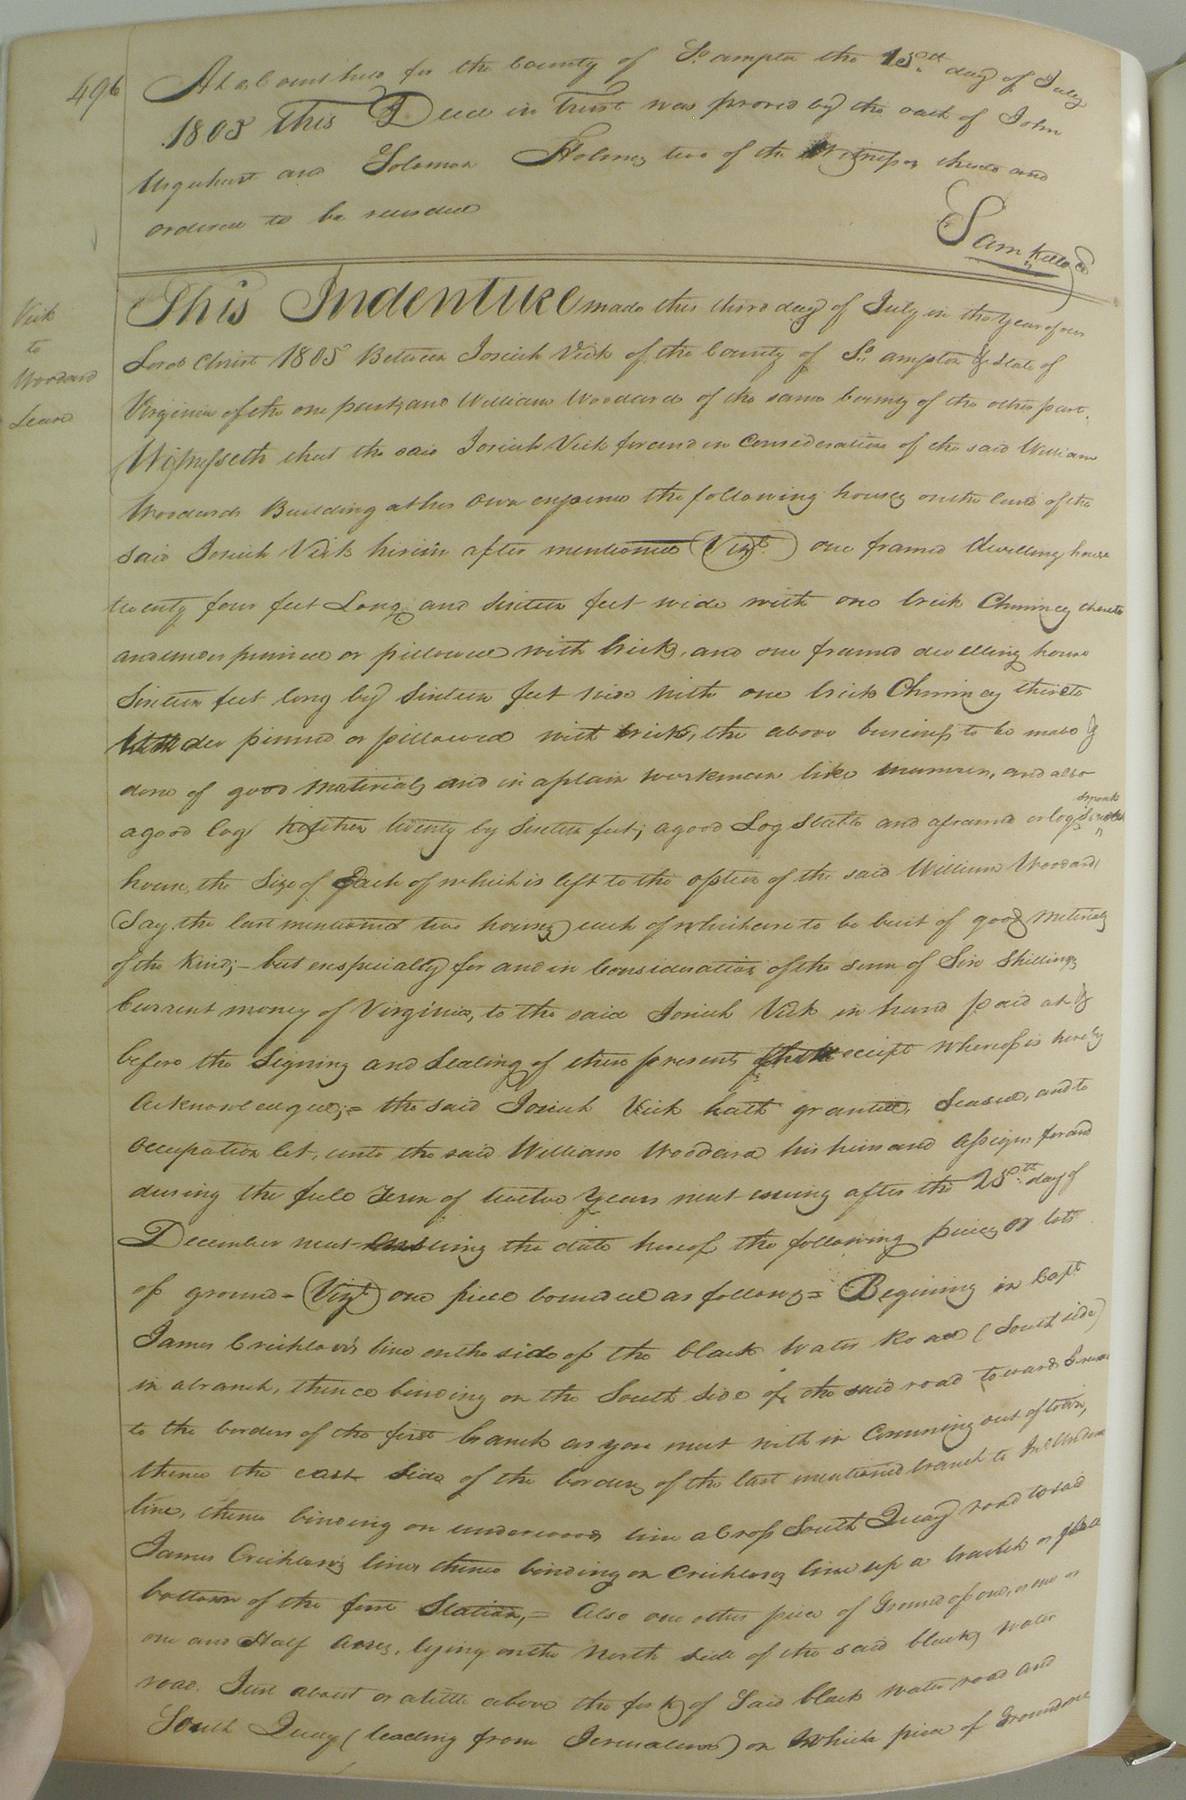 496
At a Court held for the County of So. ampton the 15th. day of July
1805 This Deed in Trust was proved by the oath of John
Urquhart and Solomon Holmes two of the Witnesses thereto and
ordered to be recorded
Sam Kello Cl
Vick
to
Woodard
Lease
This Indenture made this third day of July in the Year of our
Lord Christ 1805 Between Josiah Vick of the County of So. ampton & State of
Virginia of the one part, and William Woodard of the same County of the other part.
Witnesseth that the said Josiah Vick for and in Consideration of the said William
Woodards Building at his own expence the following houses on the land of the
said Josiah Vick herein after mentioned (Vizt.) one framed dwelling house
twenty four feet Long and sixteen feet wide with one brick Chimney thereto
and under pinned or pillowed with brick, and one framed dwelling house
Sixteen feet long by Sixteen feet wide with one brick Chimney thereto
under pinned or pillowed with brick, the above business to be made &
done of good materials and in a plain workman like manner, and also
a good log Kitchen twenty by Sixteen feet; a good Log Stable and a framed or log smoak
house, the Size of Each of which is left to the option of the said William Woodard
(Say the last mentioned two houses) each of which are to be built of good Materials
of the Kind; - but especially for and in Consideration of the sum of Six Shillings
Current money of Virginia, to the said Josiah Vick in hand paid at &
before the Signing and Sealing of these presents the receipt whereof is hereby
Acknowledged; = the said Josiah Vick hath granted, Leased, and to
Occupation let, unto the said William Woodard his heirs and Assigns for and
during the full Term of twelve Years next ensuing after the 25th. day of
December next ensuing the date hereof the following pieces or lots
of ground - (Vizt) one piece bounded as follows = Begining in Capt
James Crichlow's line on the side of the black Water Road (South side)
in a branch, thence binding on the South Side of the said road towards
to the borders of the first branch as you meet with in Comming out of town,
thence the east Side of the borders of the last mentioned branch to
line, thence binding on underwoods line across South Quay road to said
James Crichlows line, thence binding on Crichlows line up a branch or
bottom of the first Station, = Also one other piece of Ground of one, or
one and Half Acres, lying on the North side of the said black water
road. Just about or a little above the fork of Said black water road and
South Quay (leading from Jerusalem) on Which piece of Ground one